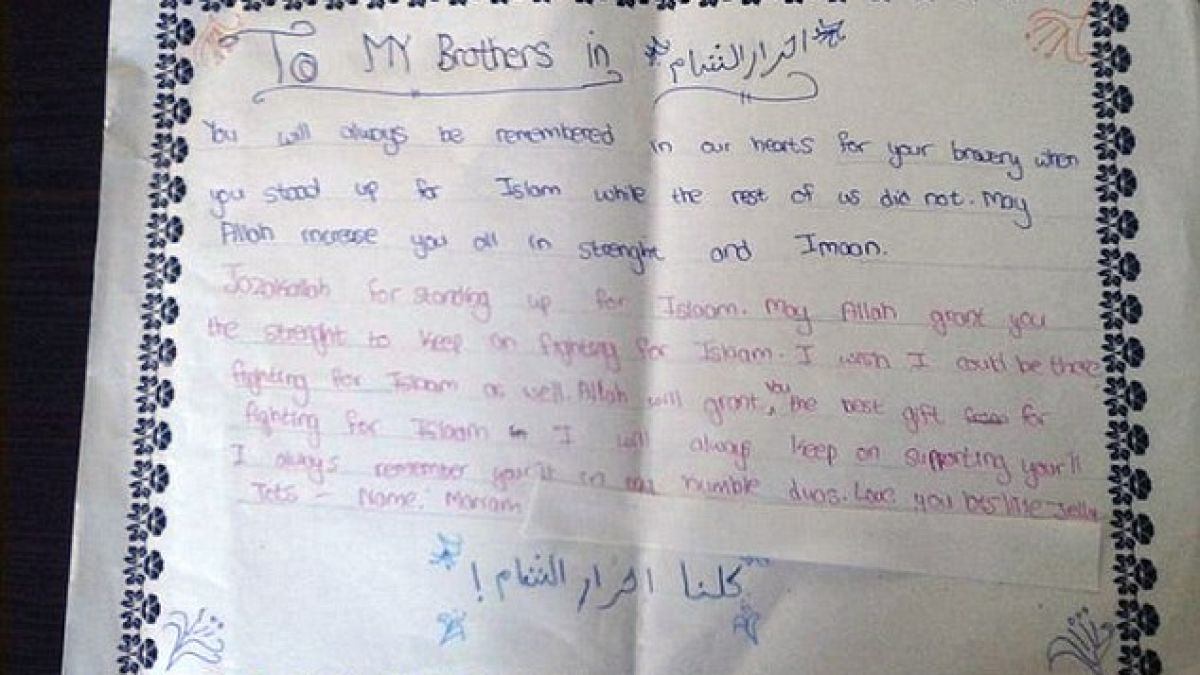 To MY Brothers in احرار الشام
You will always be remembered in our hearts for your bravery when
you stood up for Islam while the rest of us did not. May
Allah increase you all in strenght and Imaan.
Jazakallah for standing up for Islaam. May Allah grant you
the strenght to keep on fighting for Islaam. I wish I could be there
fighting for Islaam as well. Allah will grant you the best gift for
fighting for Islaam I will always keep on supporting your'll
I always remember your'll in humble duas. Love you lots like Jelly
Tots - Name: Mariam
كلنا احرار الشام!